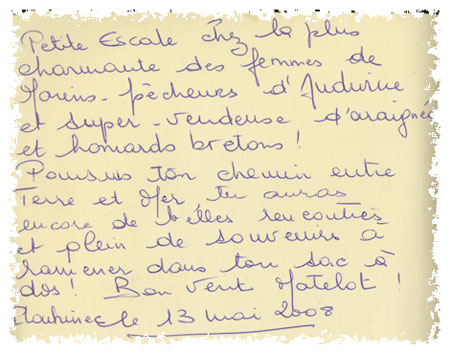 Petite Escale chez la plus
charmante des femmes de
Marins-pêcheurs d'Audierne
et super-vendeuse d'araignée
et homards bretons !
Poursuis ton chemin entre
Terre et Mer, tu auras
encore de belles rencontres
et plein de souvenirs a
ramener dans ton sac à
dos ! Bon vent Matelot !
le 13 mai 2008